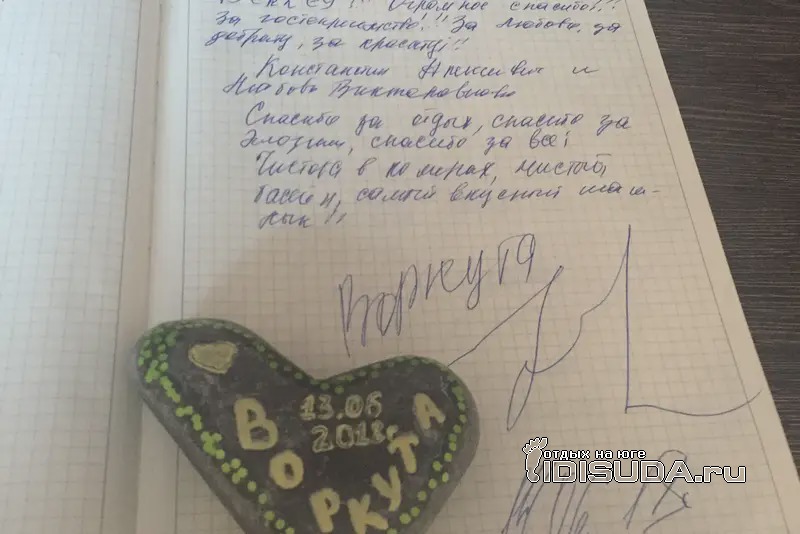 Огромное спасибо!!!
За гостеприимство!!! За любовь, за
доброту, за красоту!!
Константин Алексеевич и
Любовь Викторовна
Спасибо за отдых, спасибо за
спасибо за все!
Чистота в комерах, чистый
бассейн, самый вкусный шаш-
лык!!
Воркута
13.06
2018г.
ВОРКУТА
отдых на юге
IDISUDA.ru